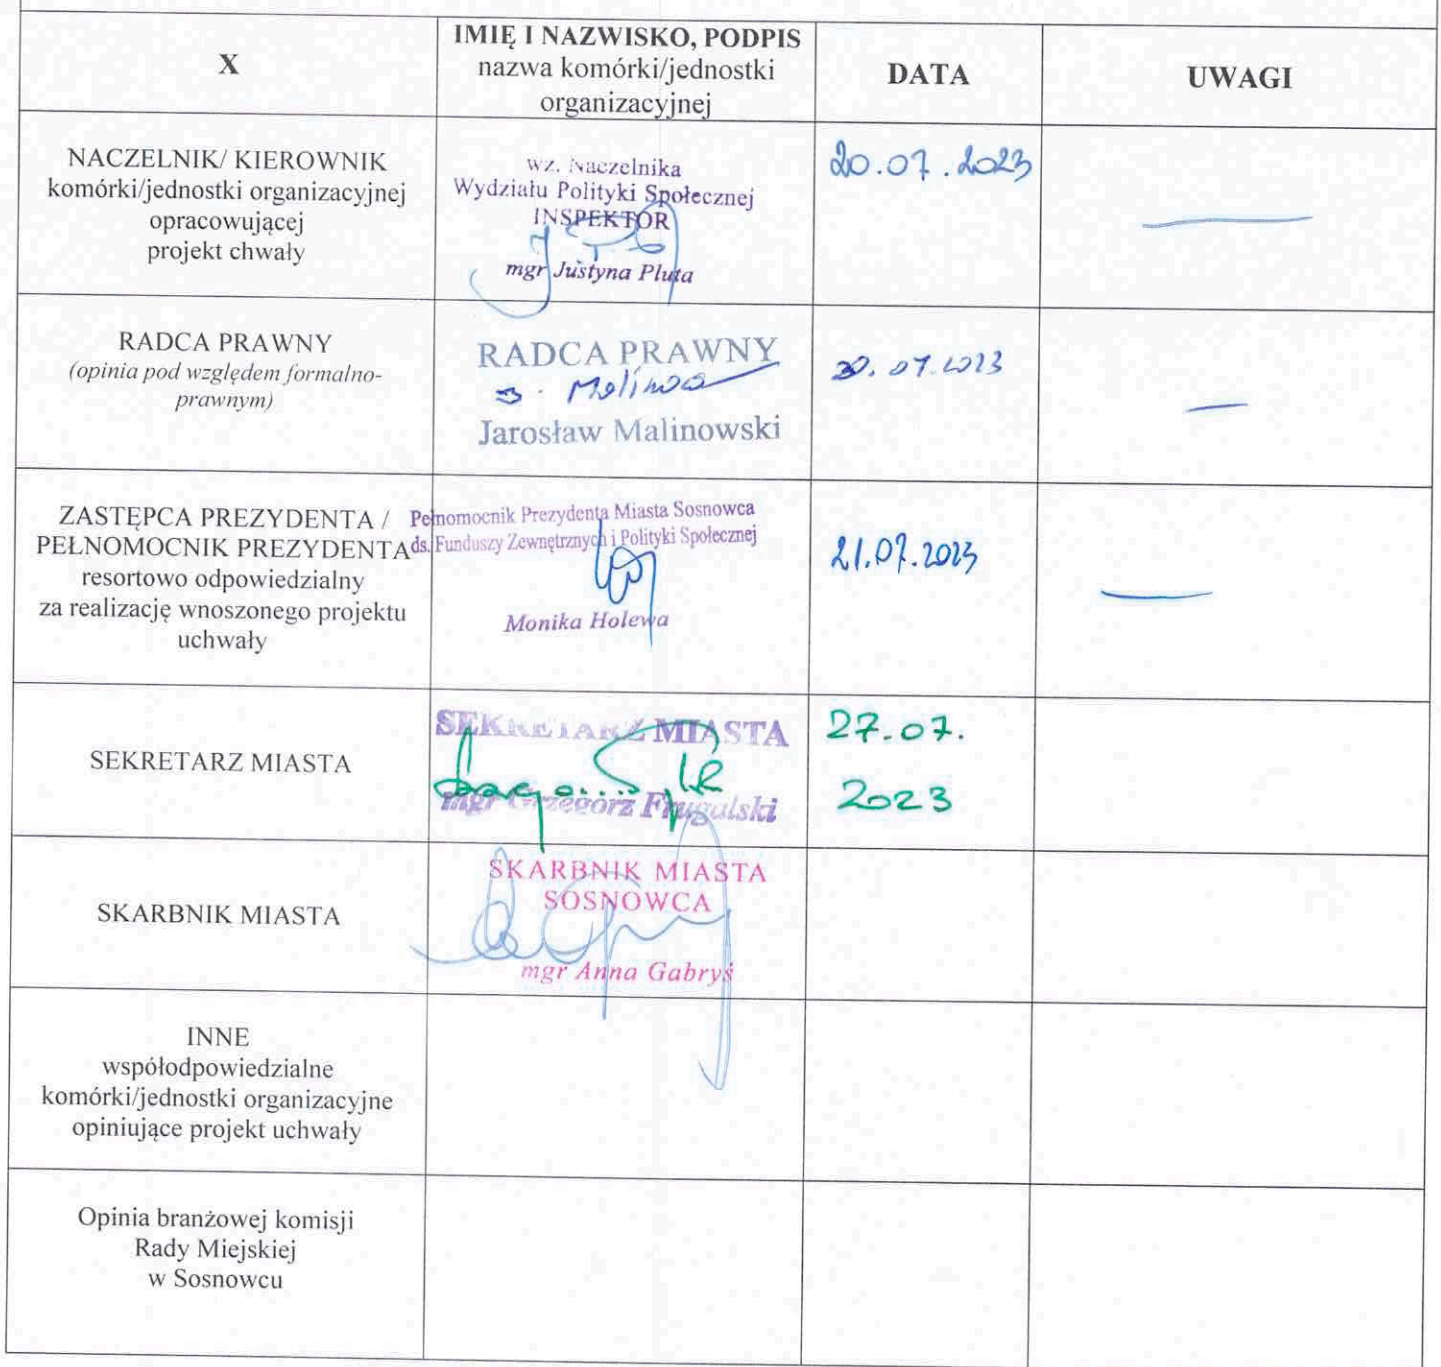 X
IMIĘ I NAZWISKO, PODPIS
nazwa komórki/jednostki
organizacyjnej
DATA
UWAGI
NACZELNIK/ KIEROWNIK
komórki/jednostki organizacyjnej
opracowującej
projekt chwały
wz. Naczelnika
Wydziału Polityki Społecznej
INSPEKTOR
mgr Justyna Pluta
20.07.2023
RADCA PRAWNY
(opinia pod względem formalno-
prawnym)
RADCA PRAWNY
Jarosław Malinowski
20.07.2023
ZASTĘPCA PREZYDENTA /
PEŁNOMOCNIK PREZYDENTA
resortowo odpowiedzialny
za realizację wnoszonego projektu
uchwały
Pełnomocnik Prezydenta Miasta Sosnowca
ds. Funduszy Zewnętrznych i Polityki Społecznej
Monika Holewa
21.07.2023
SEKRETARZ MIASTA
SEKRETARZ MIASTA
mgr Grzegorz Frugalski
27.07.
2023
SKARBNIK MIASTA
SKARBNIK MIASTA
SOSNOWCA
mgr Anna Gabryś
INNE
współodpowiedzialne
komórki/jednostki organizacyjne
opiniujące projekt uchwały
Opinia branżowej komisji
Rady Miejskiej
w Sosnowcu